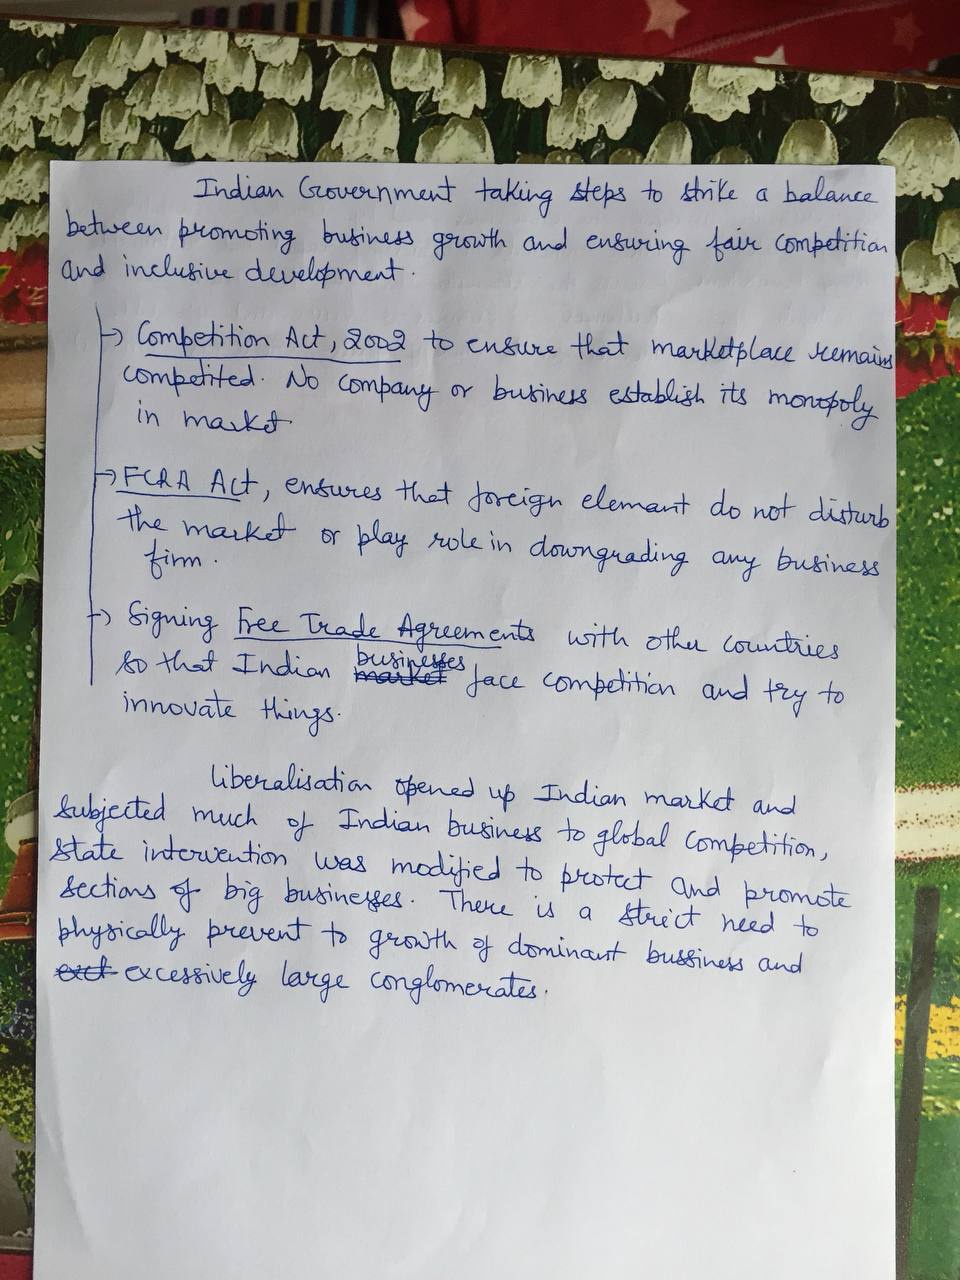 Indian Government taking steps to strike a balance
between promoting business growth and ensuring fair competition
and inclusive development.
→ Competition Act, 2002 to ensure that marketplace remains
competited. No company or business establish its monopoly
in market.
→ FCRA Act, ensures that foreign elemant do not disturb
the market or play role in downgrading any business
firm.
→ Signing Free Trade Agreements with other countries
so that Indian businesses face competition and try to
innovate things.
Liberalisation opened up Indian market and
subjected much of Indian business to global competition,
state intervention was modified to protect and promote
sections of big businesses. There is a strict need to
physically prevent to growth of dominant bussiness and
excessively large conglomerates.